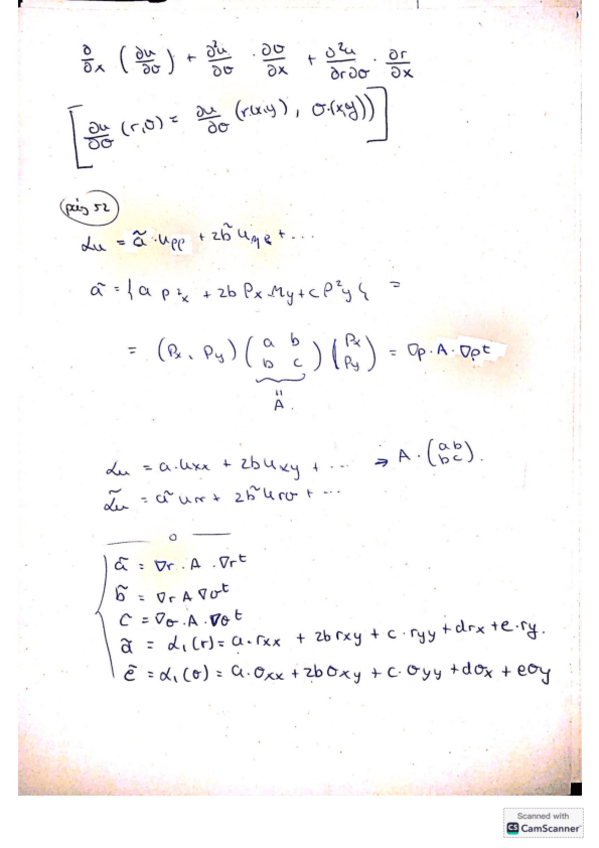 ∂/∂x (∂u/∂σ) + ∂²u/∂σ · ∂σ/∂x + ∂²u/∂r∂σ · ∂r/∂x
[∂u/∂σ (r,σ) = ∂u/∂σ (r(x,y), σ(x,y))]
pág 52
Lu = ã·uρρ + 2b̃ u + ...
ã = {a ρ²x + 2b ρx·ρy + c ρ²y} =
= (ρx, ρy) (a b / b c) (ρx / ρy) = ∇ρ·A·∇ρᵗ
"
A.
Lu = a·uxx + 2b uxy + ... → A·(a b / b c).
L̃u = ã urr + 2b̃ urσ + ...
ã = ∇r · A · ∇rᵗ
b̃ = ∇r A ∇σᵗ
c = ∇σ · A · ∇σᵗ
= L₁(r) = a·rxx + 2b rxy + c·ryy + drx + e·ry.
ẽ = L₁(σ) = a·σxx + 2bσxy + c·σyy + dσx + eσy
Scanned with
CS CamScanner